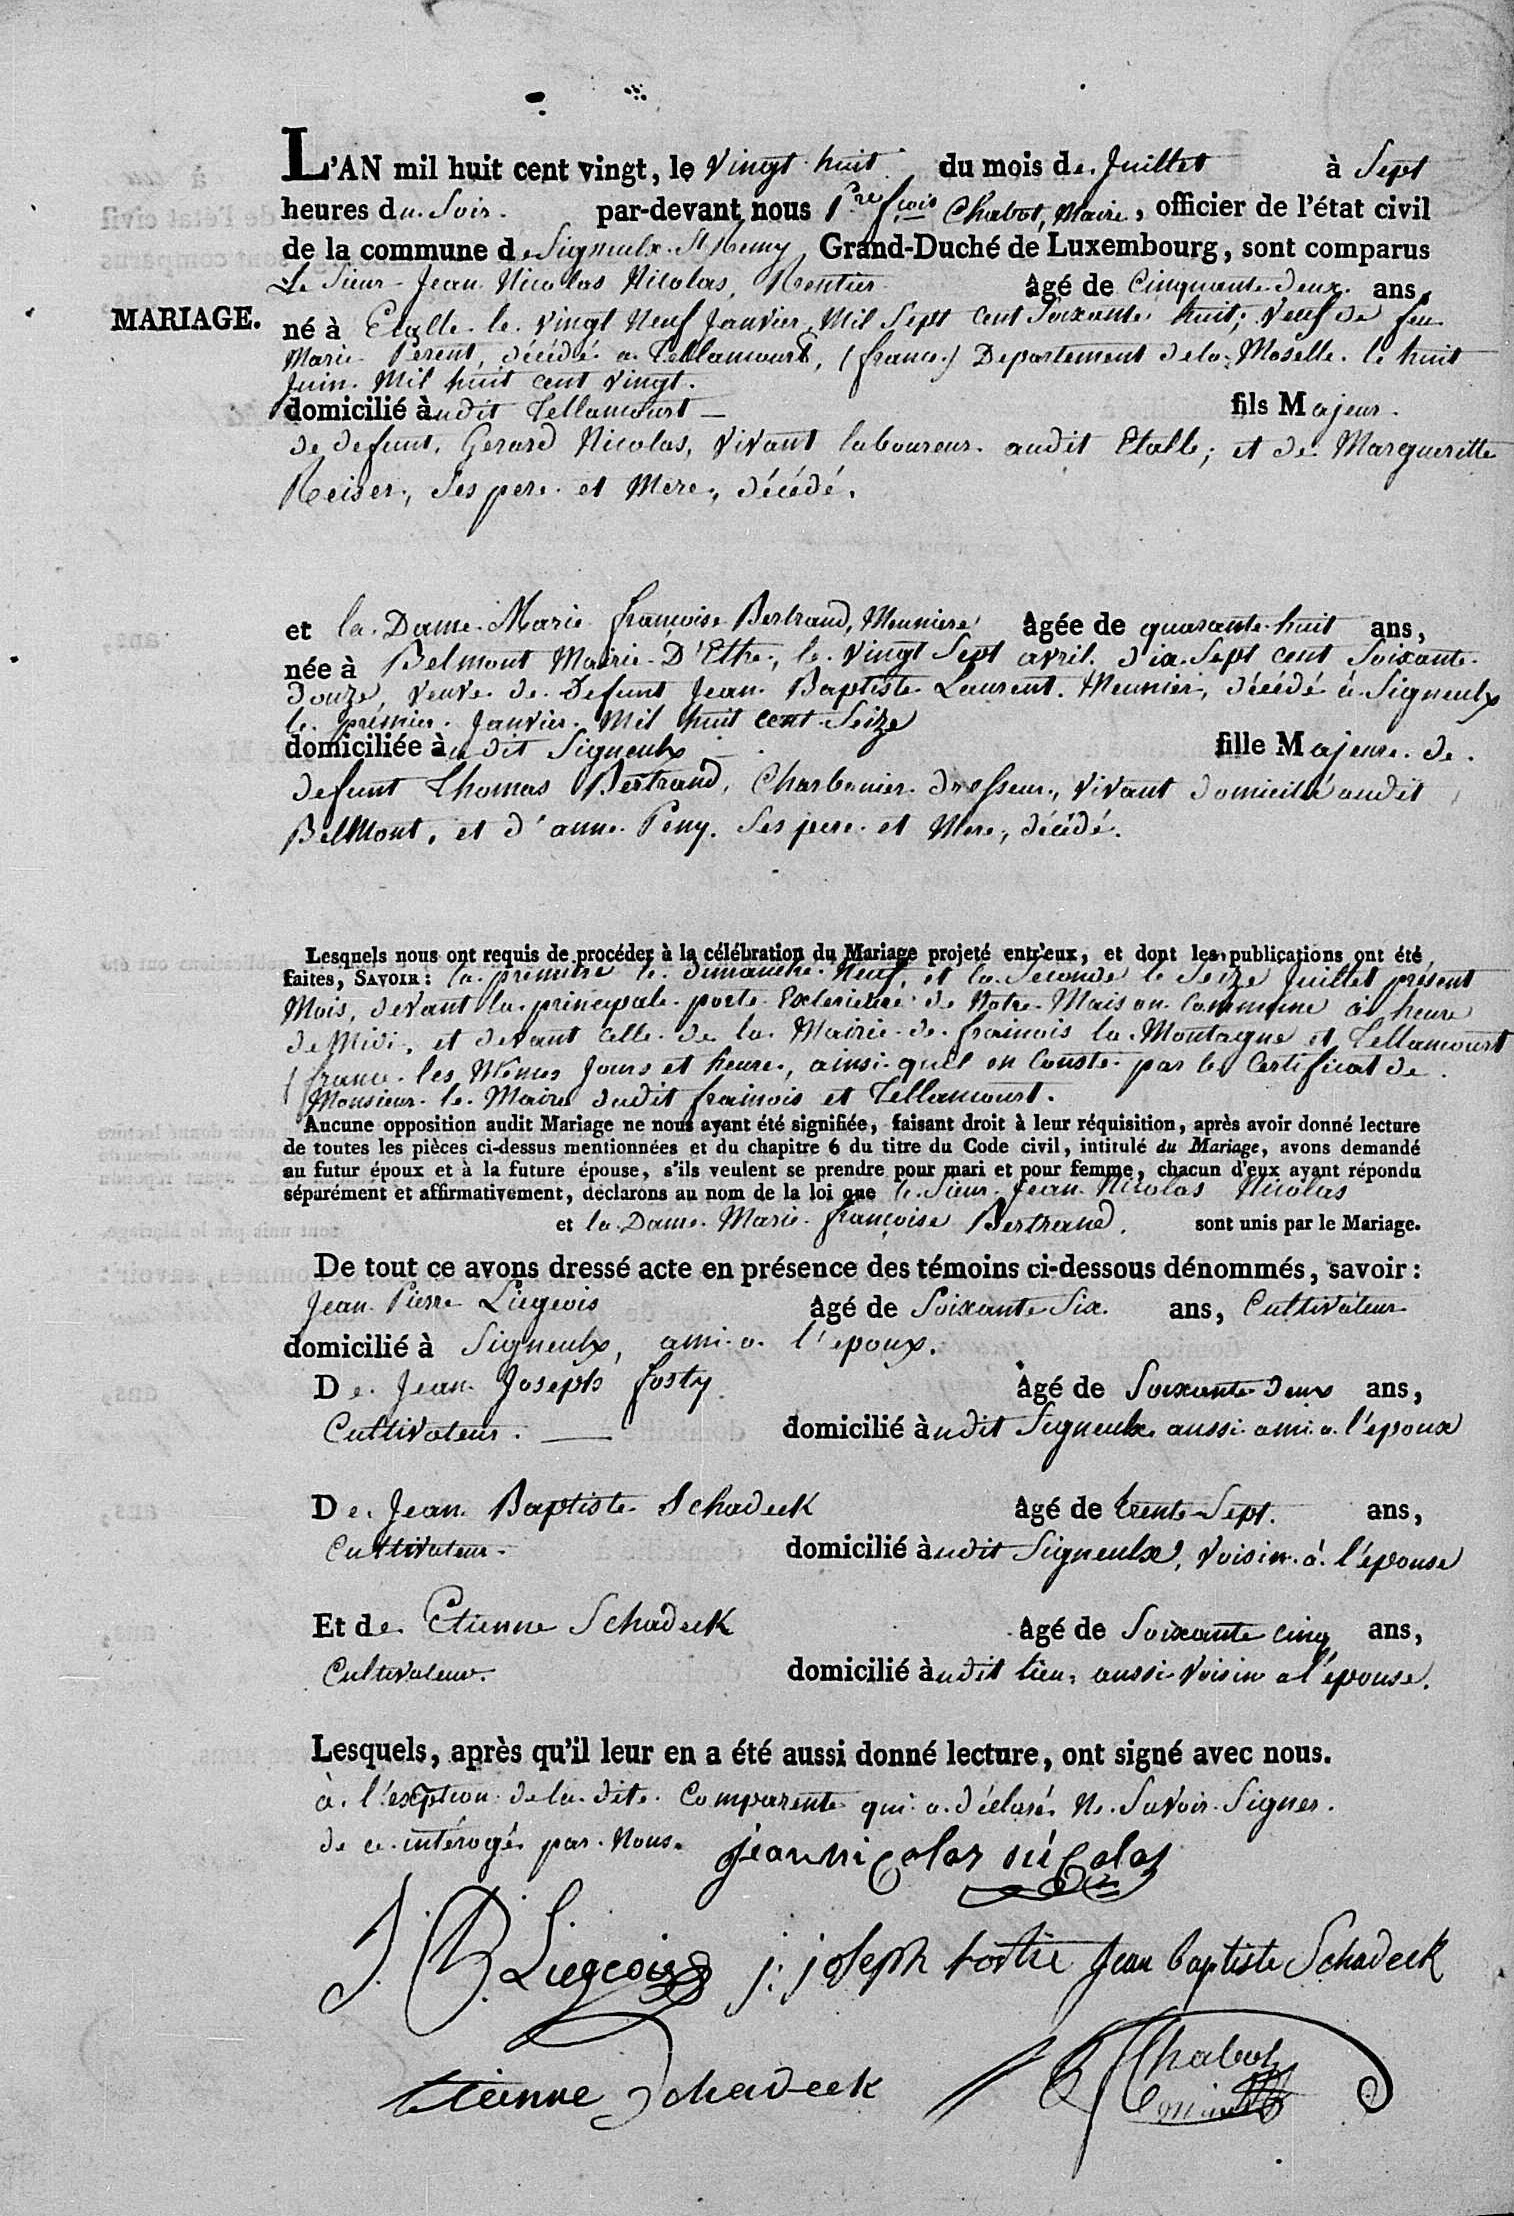 L'AN mil huit cent vingt, le vingt huit du mois de Juillet à Sept
heures du Soir. par-devant nous Pre fçois Chabot, Maire, officier de l'état civil
de la commune de Signeulx St Remy, Grand-Duché de Luxembourg, sont comparus
Le Sieur Jean Nicolas Nicolas, Rentier âgé de Cinquante deux ans,
MARIAGE.
né à Etalle le vingt Neuf Janvier Mil Sept Cent Soixante huit; veuf de feu
Marie Perent, décédé a Tellancourt, (france) Departement dela Moselle le huit
Juin Mil huit cent vingt.
domicilié àudit Tellancourt — fils Majeur
de defunt, Gerard Nicolas, vivant laboureur audit Etalle; et de Margueritte
Reiser, Ses pere et Mere, décédé.
et la Dame Marie françoise Bertrand, Meuniere âgée de quarante huit ans,
née à Belmont Mairie D'Ethe, le vingt Sept avril dix Sept cent Soixante
douze, veuve de Defunt Jean Baptiste Laurent Meunier, décédé à Signeulx
le premier Janvier Mil huit cent Seize
domiciliée àudit Signeulx fille Majeure de
defunt Thomas Bertrand, Charbonier dresseur, vivant domicilié audit
Belmont, et d'anne Peny Ses pere et Mere, décédé.
Lesquels nous ont requis de procéder à la célébration du Mariage projeté entr'eux, et dont les publications ont été
faites, SAVOIR: la premiere le dimanche Neuf, et la Seconde le Seize Juillet présent
Mois, devant la principale porte Exterieure de Notre Maison Commune à heure
de Midi, et devant celle de la Mairie de frainois la Montagne et Tellancourt
(france les Mêmes Jours et heure, ainsi quil en Conste par le Certificat de
Monsieur le Maire dudit frainois et Tellancourt.
Aucune opposition audit Mariage ne nous ayant été signifiée, faisant droit à leur réquisition, après avoir donné lecture
de toutes les pièces ci-dessus mentionnées et du chapitre 6 du titre du Code civil, intitulé du Mariage, avons demandé
au futur époux et à la future épouse, s'ils veulent se prendre pour mari et pour femme, chacun d'eux ayant répondu
séparément et affirmativement, déclarons au nom de la loi que le Sieur Jean Nicolas Nicolas
et la Dame Marie françoise Bertrand. sont unis par le Mariage.
De tout ce avons dressé acte en présence des témoins ci-dessous dénommés, savoir:
Jean Pierre Liegeois âgé de Soixante Six ans, Cultivateur
domicilié à Signeulx, ami a l'epoux.
De Jean Joseph fosty âgé de Soixante deux ans,
Cultivateur. — domicilié àudit Signeulx aussi ami a l'epoux
De Jean Baptiste Schadeck âgé de trente Sept ans,
Cultivateur domicilié àudit Signeulx, voisin à l'épouse
Et de Etienne Schadeck âgé de Soixante cinq ans,
Cultivateur. domicilié àudit lieu, aussi voisin a l'épouse.
Lesquels, après qu'il leur en a été aussi donné lecture, ont signé avec nous.
à l'exception de la dite Comparente qui a déclaré Ne Savoir Signer
de ce intérogé par Nous. jean nicolas nicolas
J. P. Liegeois j: joseph fostie Jean baptiste Schadeck
etienne Schadeck Chabot